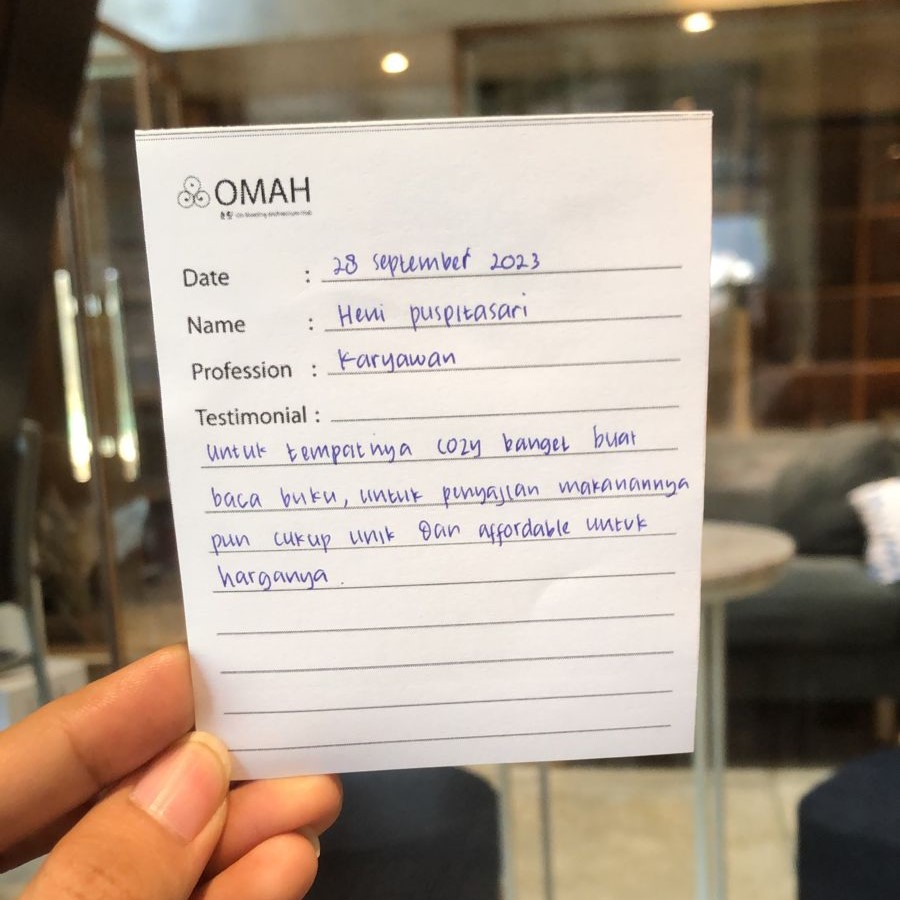 OMAH
Date : 28 September 2023
Name : Heni puspitasari
Profession : Karyawan
Testimonial :
Untuk tempatnya cozy banget buat
baca buku, untuk penyajian makanannya
pun cukup unik dan affordable untuk
harganya .